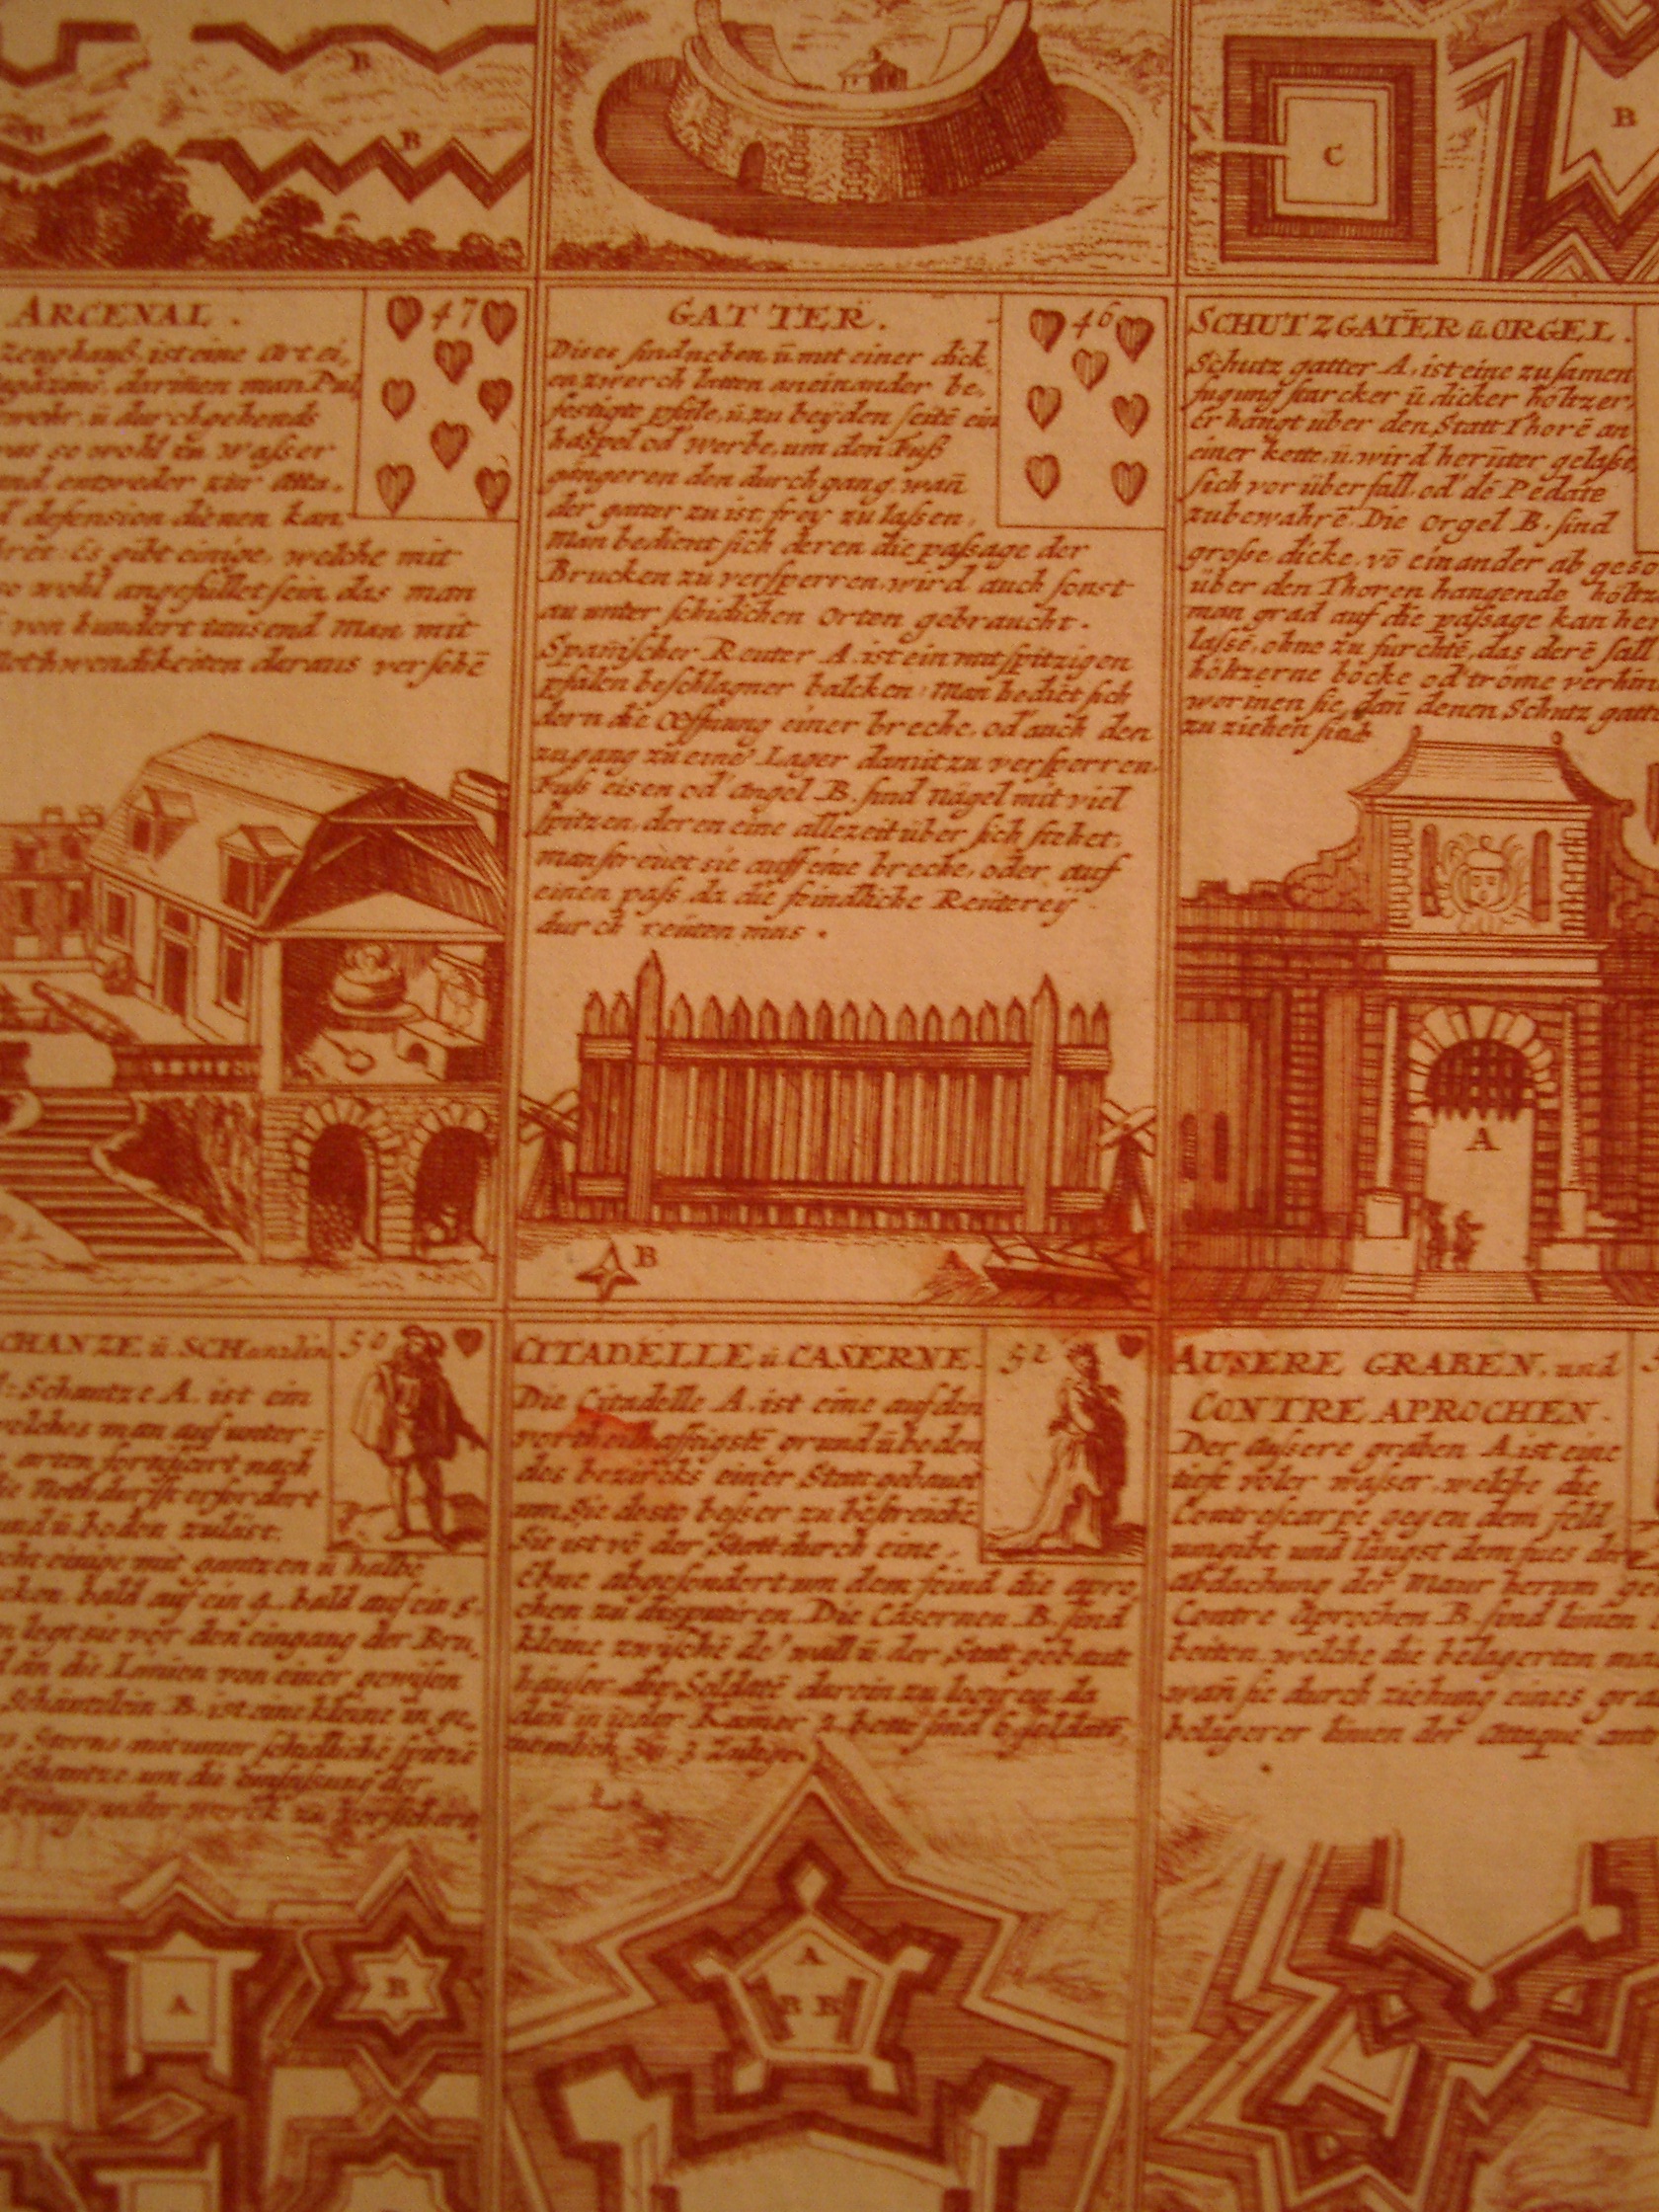 B
B
B
C
B
ARCENAL.
47
zeughauß, ist eine Art ei,
agazins, dariñen man Pul,
wehr, ü durchgehends
was so wohl zu wasser
und entweder zur Atta,
d defension dienen kan
Es gibt einige, welche mit
so wohl angefüllet sein, das man
von hundert tausend Man mit
Nothwendikeiten daraus versehē
GATTER.
46
Dises sind neben ü mit einer dick
en zwerch latten aneinander be,
festigte pfäle, ü zu beyden seitē ein
haspel od werbe, um den Fuß
gängeren den durchgang, wañ
der gatter zu ist, frey zu lassen.
Man bedient sich deren die passage der
Brucken zu versperren, wird auch sonst
an unter schidichen Orten gebraucht.
Spanischer Reuter A. ist ein mit spitzigen
pfälen beschlagner balcken: Man bediet sich
dern die Oeffnung einer breche, od auch den
zugang zu eine Lager damit zu versperren
Fuss eisen od angel B. sind Nägel mit viel
spitzen, deren eine allezeit über sich stehet,
man streuet sie auff eine breche, oder auf
einen pass da die feindliche Reüterey
durch reüten mus.
B
SCHUTZGATER ü ORGEL.
Schutz gatter A. ist eine zusamen
fugung starcker ü dicker höltzer,
Er hangt über den Statt Thorē an
einer kette, ü wird herüter gelasse,
sich vor überfall, od dē Pedate
zubewahrē. Die Orgel B. sind
grosse, dicke, vō einander ab geso
über den Thoren hangende höltz
man grad auf die passage kan her
lassē, ohne zu furchtē, das derē fall
höltzerne böcke od tröme verhin
worinen sie, dañ denen Schutz gatt
zu ziehen sind
A
CHANZE ü SCHanzlin
50
Schantze A. ist ein
welches man auf unter=
arten fortificirt nach
die Nothdurfft erfordert
und ü boden zuläst.
einige mit gantzen ü halbē
cken, bald auf ein 4. bald auf ein 5.
legt sie vor den eingang der Bru,
an die Linien von einer gewissen
Schäntzlein B. ist eine kleine in ge,
Sterns mit unterschidlichē spitzē
Schantze um die umfassung der
ander werck zu versichern
A
B
CITADELLE ü CASERNE.
52
Die Citadelle A. ist eine auf den
vortheilhafftigstē grund ü boden
des bezircks einer Statt gebauet
um Sie desto besser zu bestreichē
Sie ist vō der Statt durch eine
Ebne abgesondert um dem feind die apro
chen zu disputiren. Die Casernen B. sind
kleine zwischē de wall ü der Statt gebaute
häuser die Soldatē darein zu logiren da
dañ in ieder Kamer 2. bette sind 6 soldatē
nemblich 3 Zulige.
A
B B
AUSERE GRABEN. und
CONTRE APROCHEN.
Der äussere graben A. ist eine
tiefe voler wasser, welche die
Contrescarpe gegen dem feld
umgibt und längst dem fues der
abdachung der Maur herum ge
Contre Aprochen B. sind linien
beiten, welche die belagerten ma
wañ sie durch ziehung eines gra
belägerer linien der Attaque